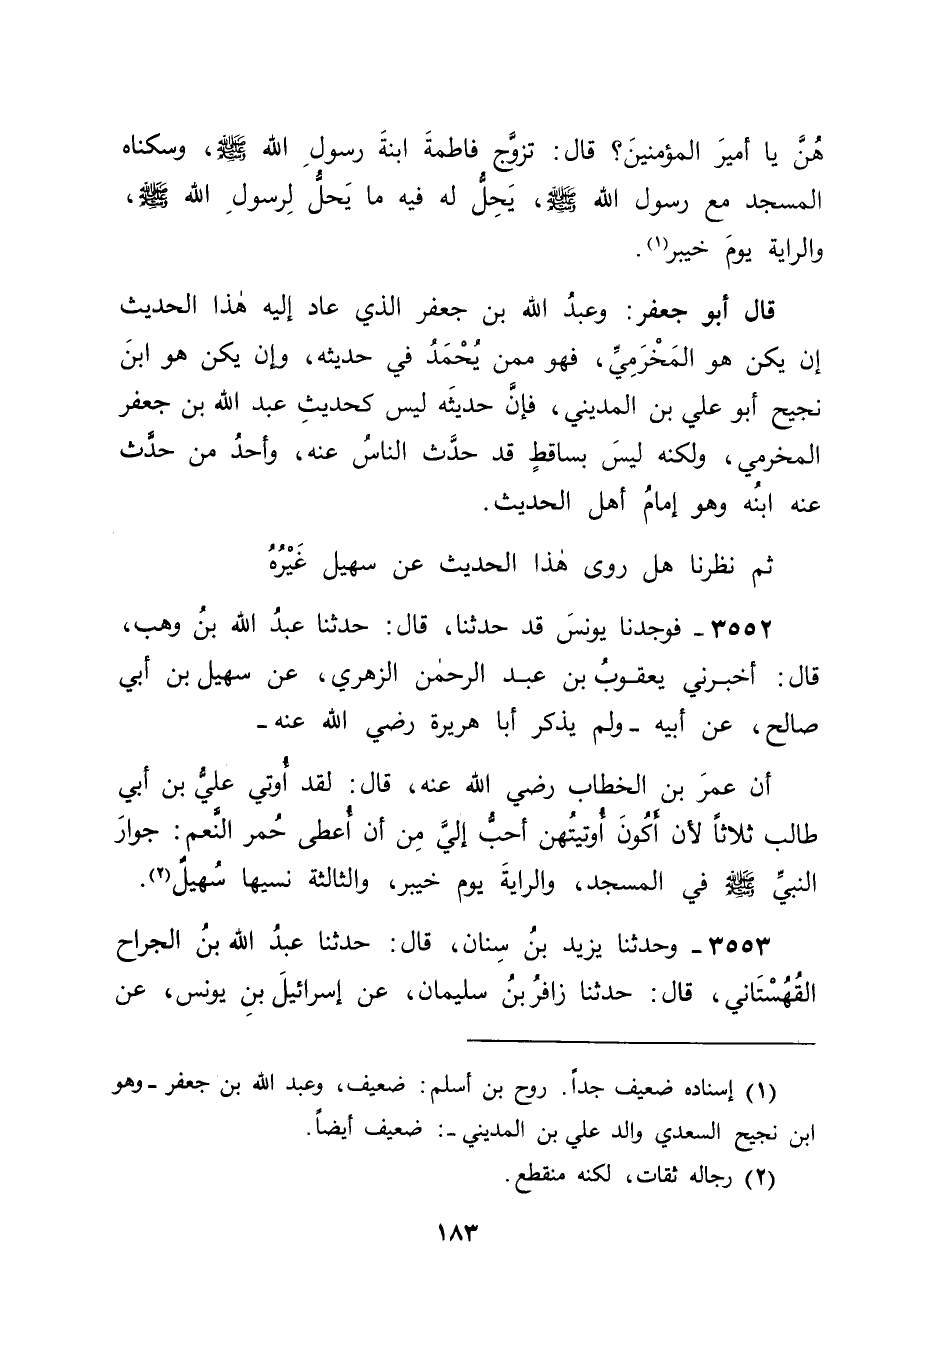 هُنَّ يا أميرَ المؤمنينَ؟ قال: تزوَّج فاطمةَ ابنةَ رسولِ الله ﷺ، وسكناه
المسجد مع رسول الله ﷺ، يَحِلُّ له فيه ما يَحلُّ لِرسولِ الله ﷺ،
والراية يومَ خيبر(١).
قال أبو جعفر: وعبدُ الله بن جعفر الذي عاد إليه هٰذا الحديث
إن يكن هو المَخْرَمِيِّ، فهو ممن يُحْمَدُ في حديثه، وإن يكن هو ابنَ
نجيح أبو علي بن المديني، فإنَّ حديثَه ليس كحديثِ عبد الله بن جعفر
المخرمي، ولكنه ليسَ بساقطٍ قد حدَّث الناسُ عنه، وأحدُ من حدَّث
عنه ابنُه وهو إمامُ أهل الحديث.
ثم نظرنا هل روى هٰذا الحديث عن سهيل غَيْرُهُ
٣٥٥٢ ـ فوجدنا يونسَ قد حدثنا، قال: حدثنا عبدُ الله بنُ وهب،
قال: أخبرني يعقوبُ بن عبد الرحمٰن الزهري، عن سهيل بن أبي
صالح، عن أبيه ـ ولم يذكر أبا هريرة رضي الله عنه ـ
أن عمرَ بن الخطاب رضي الله عنه، قال: لقد أُوتي عليُّ بن أبي
طالب ثلاثاً لأن أَكُونَ أُوتيتُهن أحبُّ إليَّ مِن أن أُعطى حُمر النَّعم: جوارَ
النبيِّ ﷺ في المسجد، والرايةَ يوم خيبر، والثالثة نسيها سُهيلٌ(٢).
٣٥٥٣ ـ وحدثنا يزيد بنُ سِنان، قال: حدثنا عبدُ الله بنُ الجراح
القُهُسْتَاني، قال: حدثنا زافرُ بنُ سليمان، عن إسرائيلَ بنِ يونس، عن
(١) إسناده ضعيف جداً. روح بن أسلم: ضعيف، وعبد الله بن جعفر ـ وهو
ابن نجيح السعدي والد علي بن المديني ـ: ضعيف أيضاً.
(٢) رجاله ثقات، لكنه منقطع.
١٨٣